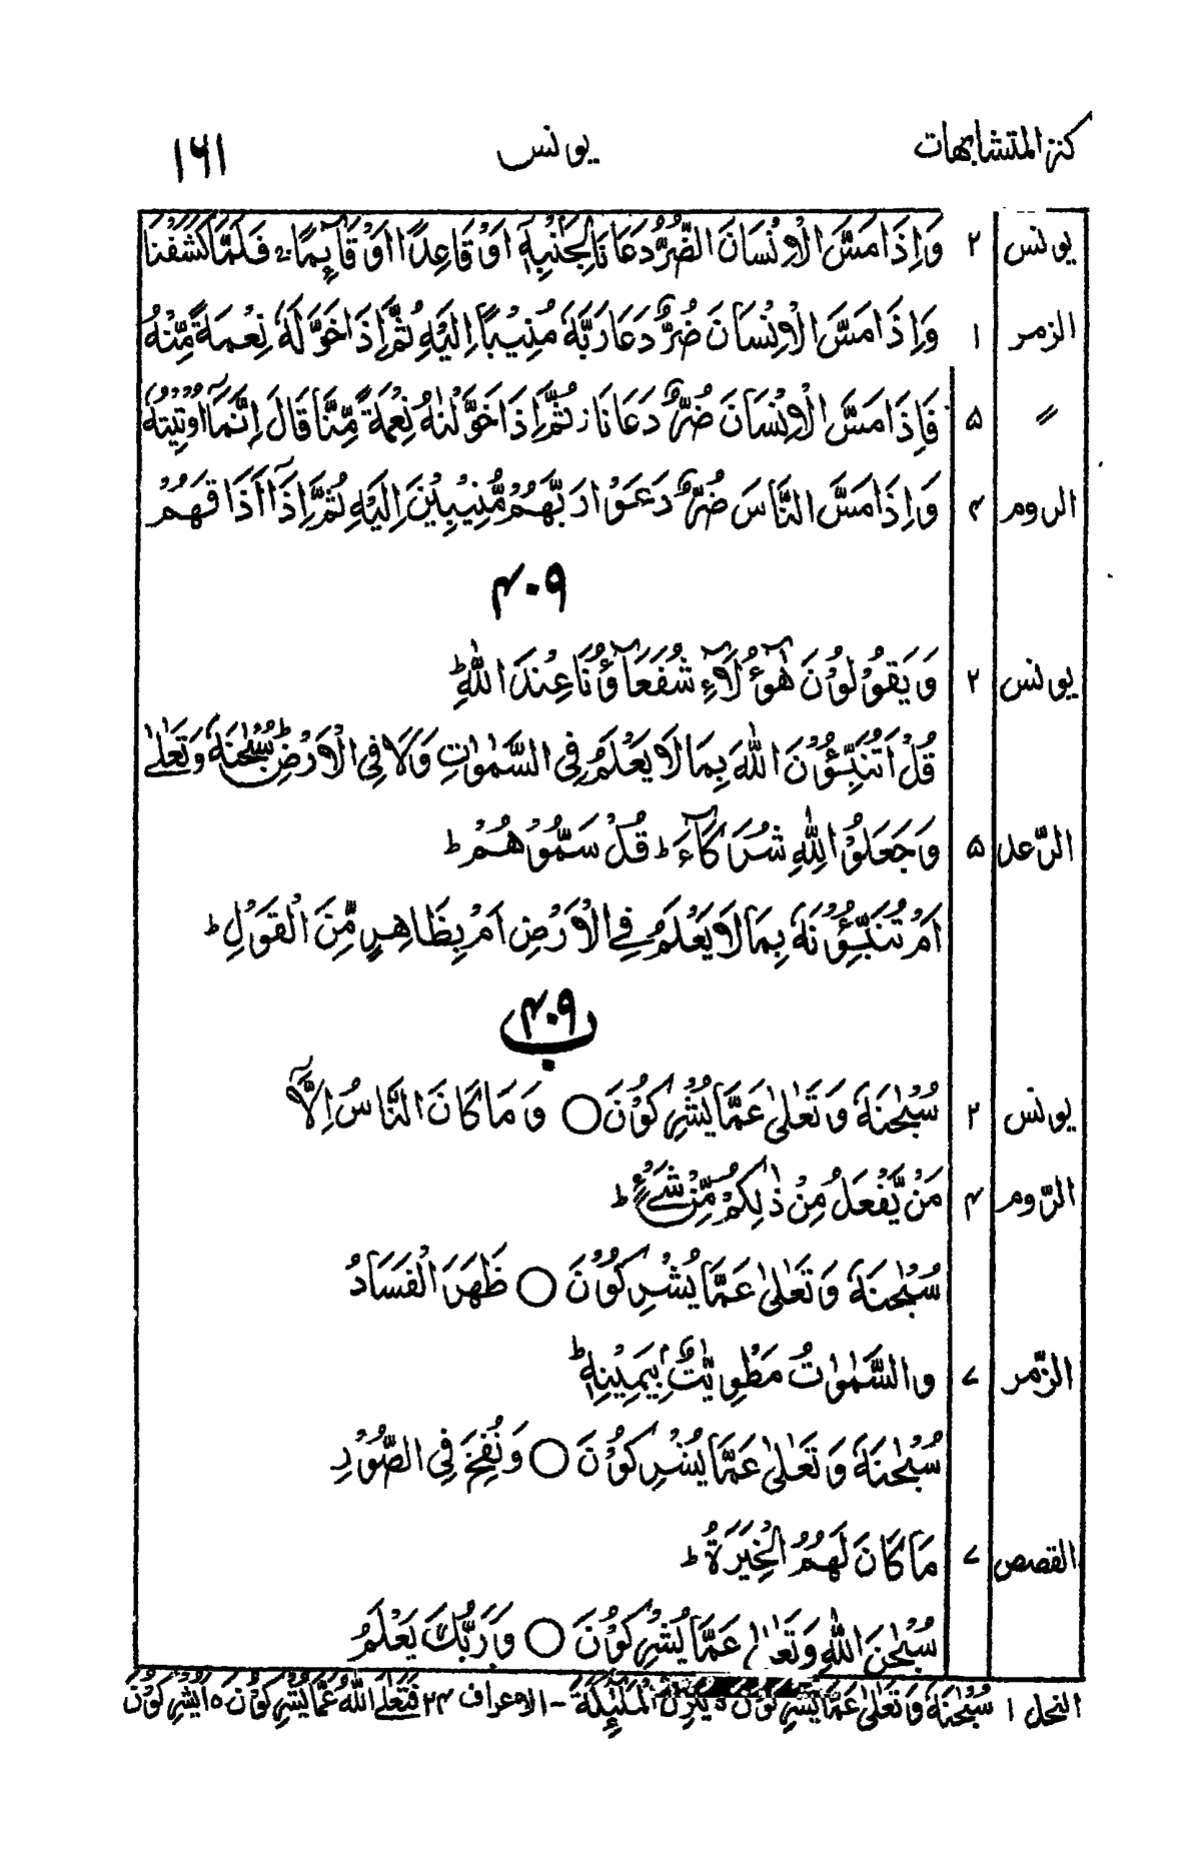 كنز المتشابهات يونس ۱۶۱
يونس ۲ وَاِذَا مَسَّ الْاِنْسَانَ الضُّرُّ دَعَانَا لِجَنْۢبِهٖٓ اَوْ قَاعِدًا اَوْ قَآىِٕمًا ۚ فَلَمَّا كَشَفْنَا
الزمر ۱ وَاِذَا مَسَّ الْاِنْسَانَ ضُرٌّ دَعَا رَبَّهٗ مُنِيْبًا اِلَيْهِ ثُمَّ اِذَا خَوَّلَهٗ نِعْمَةً مِّنْهُ
〃 ۵ فَاِذَا مَسَّ الْاِنْسَانَ ضُرٌّ دَعَانَا ز ثُمَّ اِذَا خَوَّلْنٰهُ نِعْمَةً مِّنَّا قَالَ اِنَّمَآ اُوْتِيْتُهٗ
الروم ۴ وَاِذَا مَسَّ النَّاسَ ضُرٌّ دَعَوْا رَبَّهُمْ مُّنِيْبِيْنَ اِلَيْهِ ثُمَّ اِذَآ اَذَاقَهُمْ
۴۰۹
يونس ۲ وَيَقُوْلُوْنَ هٰٓؤُلَآءِ شُفَعَآؤُنَا عِنْدَ اللّٰهِ ؕ
قُلْ اَتُنَبِّـُٔوْنَ اللّٰهَ بِمَا لَا يَعْلَمُ فِى السَّمٰوٰتِ وَلَا فِى الْاَرْضِ ؕ سُبْحٰنَهٗ وَتَعٰلٰى
الرّعد ۵ وَجَعَلُوْا لِلّٰهِ شُرَكَآءَ ؕ قُلْ سَمُّوْهُمْ ؕ
اَمْ تُنَبِّـُٔوْنَهٗ بِمَا لَا يَعْلَمُ فِى الْاَرْضِ اَمْ بِظَاهِرٍ مِّنَ الْقَوْلِ ؕ
۴۰۹ ب
يونس ۲ سُبْحٰنَهٗ وَتَعٰلٰى عَمَّا يُشْرِكُوْنَ ○ وَمَا كَانَ النَّاسُ اِلَّآ
الرّوم ۴ مَنْ يَّفْعَلُ مِنْ ذٰلِكُمْ مِّنْ شَىْءٍ ؕ
سُبْحٰنَهٗ وَتَعٰلٰى عَمَّا يُشْرِكُوْنَ ○ ظَهَرَ الْفَسَادُ
الزّمر ۷ والسَّمٰوٰتُ مَطْوِيّٰتٌۢ بِيَمِيْنِهٖ ؕ
سُبْحٰنَهٗ وَتَعٰلٰى عَمَّا يُشْرِكُوْنَ ○ وَنُفِخَ فِى الصُّوْرِ
القصص ۷ مَا كَانَ لَهُمُ الْخِيَرَةُ ؕ
سُبْحٰنَ اللّٰهِ وَتَعٰلٰى عَمَّا يُشْرِكُوْنَ ○ وَرَبُّكَ يَعْلَمُ
النحل ۱ سُبْحٰنَهٗ وَتَعٰلٰى عَمَّا يُشْرِكُوْنَ ۵ يُنَزِّلُ الْمَلٰٓىِٕكَةَ - الاعراف ۲۴ فَتَعٰلَى اللّٰهُ عَمَّا يُشْرِكُوْنَ ۵ اَيُشْرِكُوْنَ